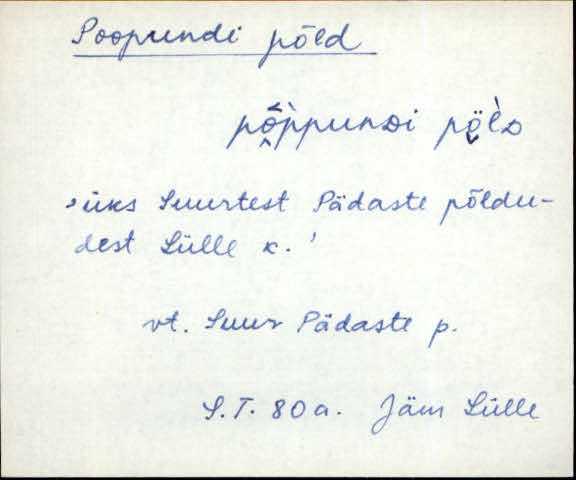 Poopundi põld
pô̭ppunᴅi pö̭̀lᴅ
'üks Suurtest Pädaste põldu-
dest Lülle k.'
vt. Suur Pädaste p.
S.T. 80a. Jäm Lülle